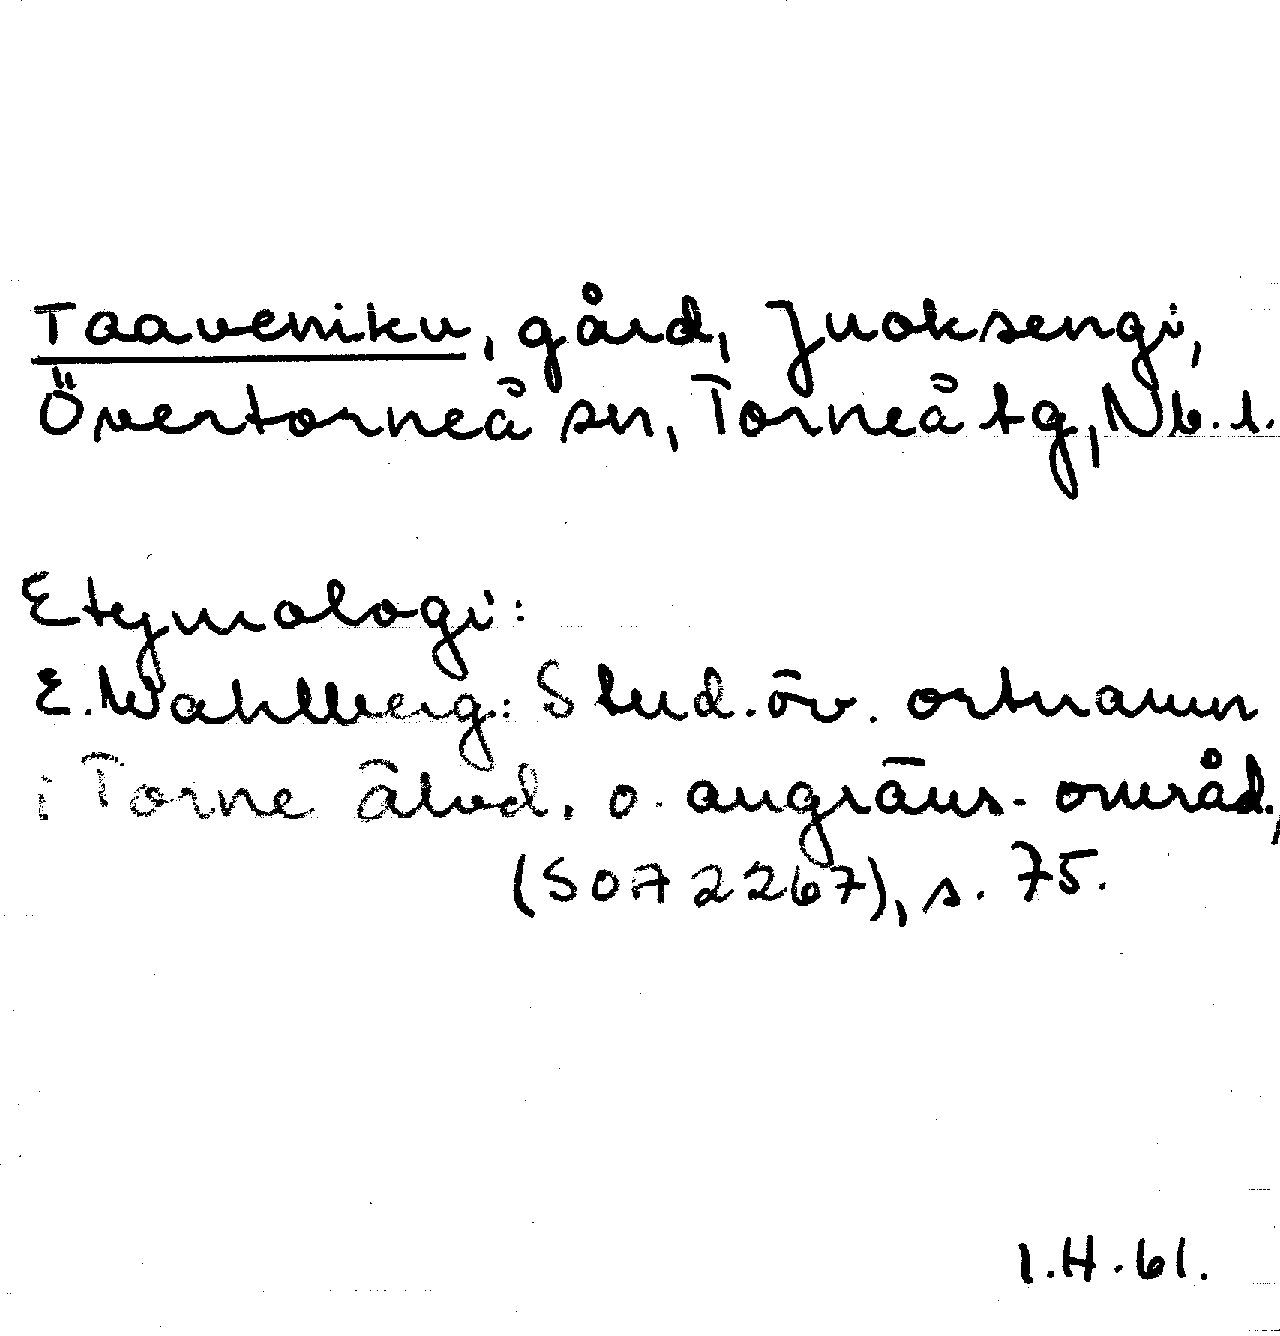 Taaveniku, gård, Juoksengi,
Övertorneå sn, Torneå tg, Nb. l.
Etymologi:
E. Wahlberg: Stud. öv. ortnamn
i Torne älvd. o. angräns. områd.,
(SOA 2267), s. 75.
I.H. 61.